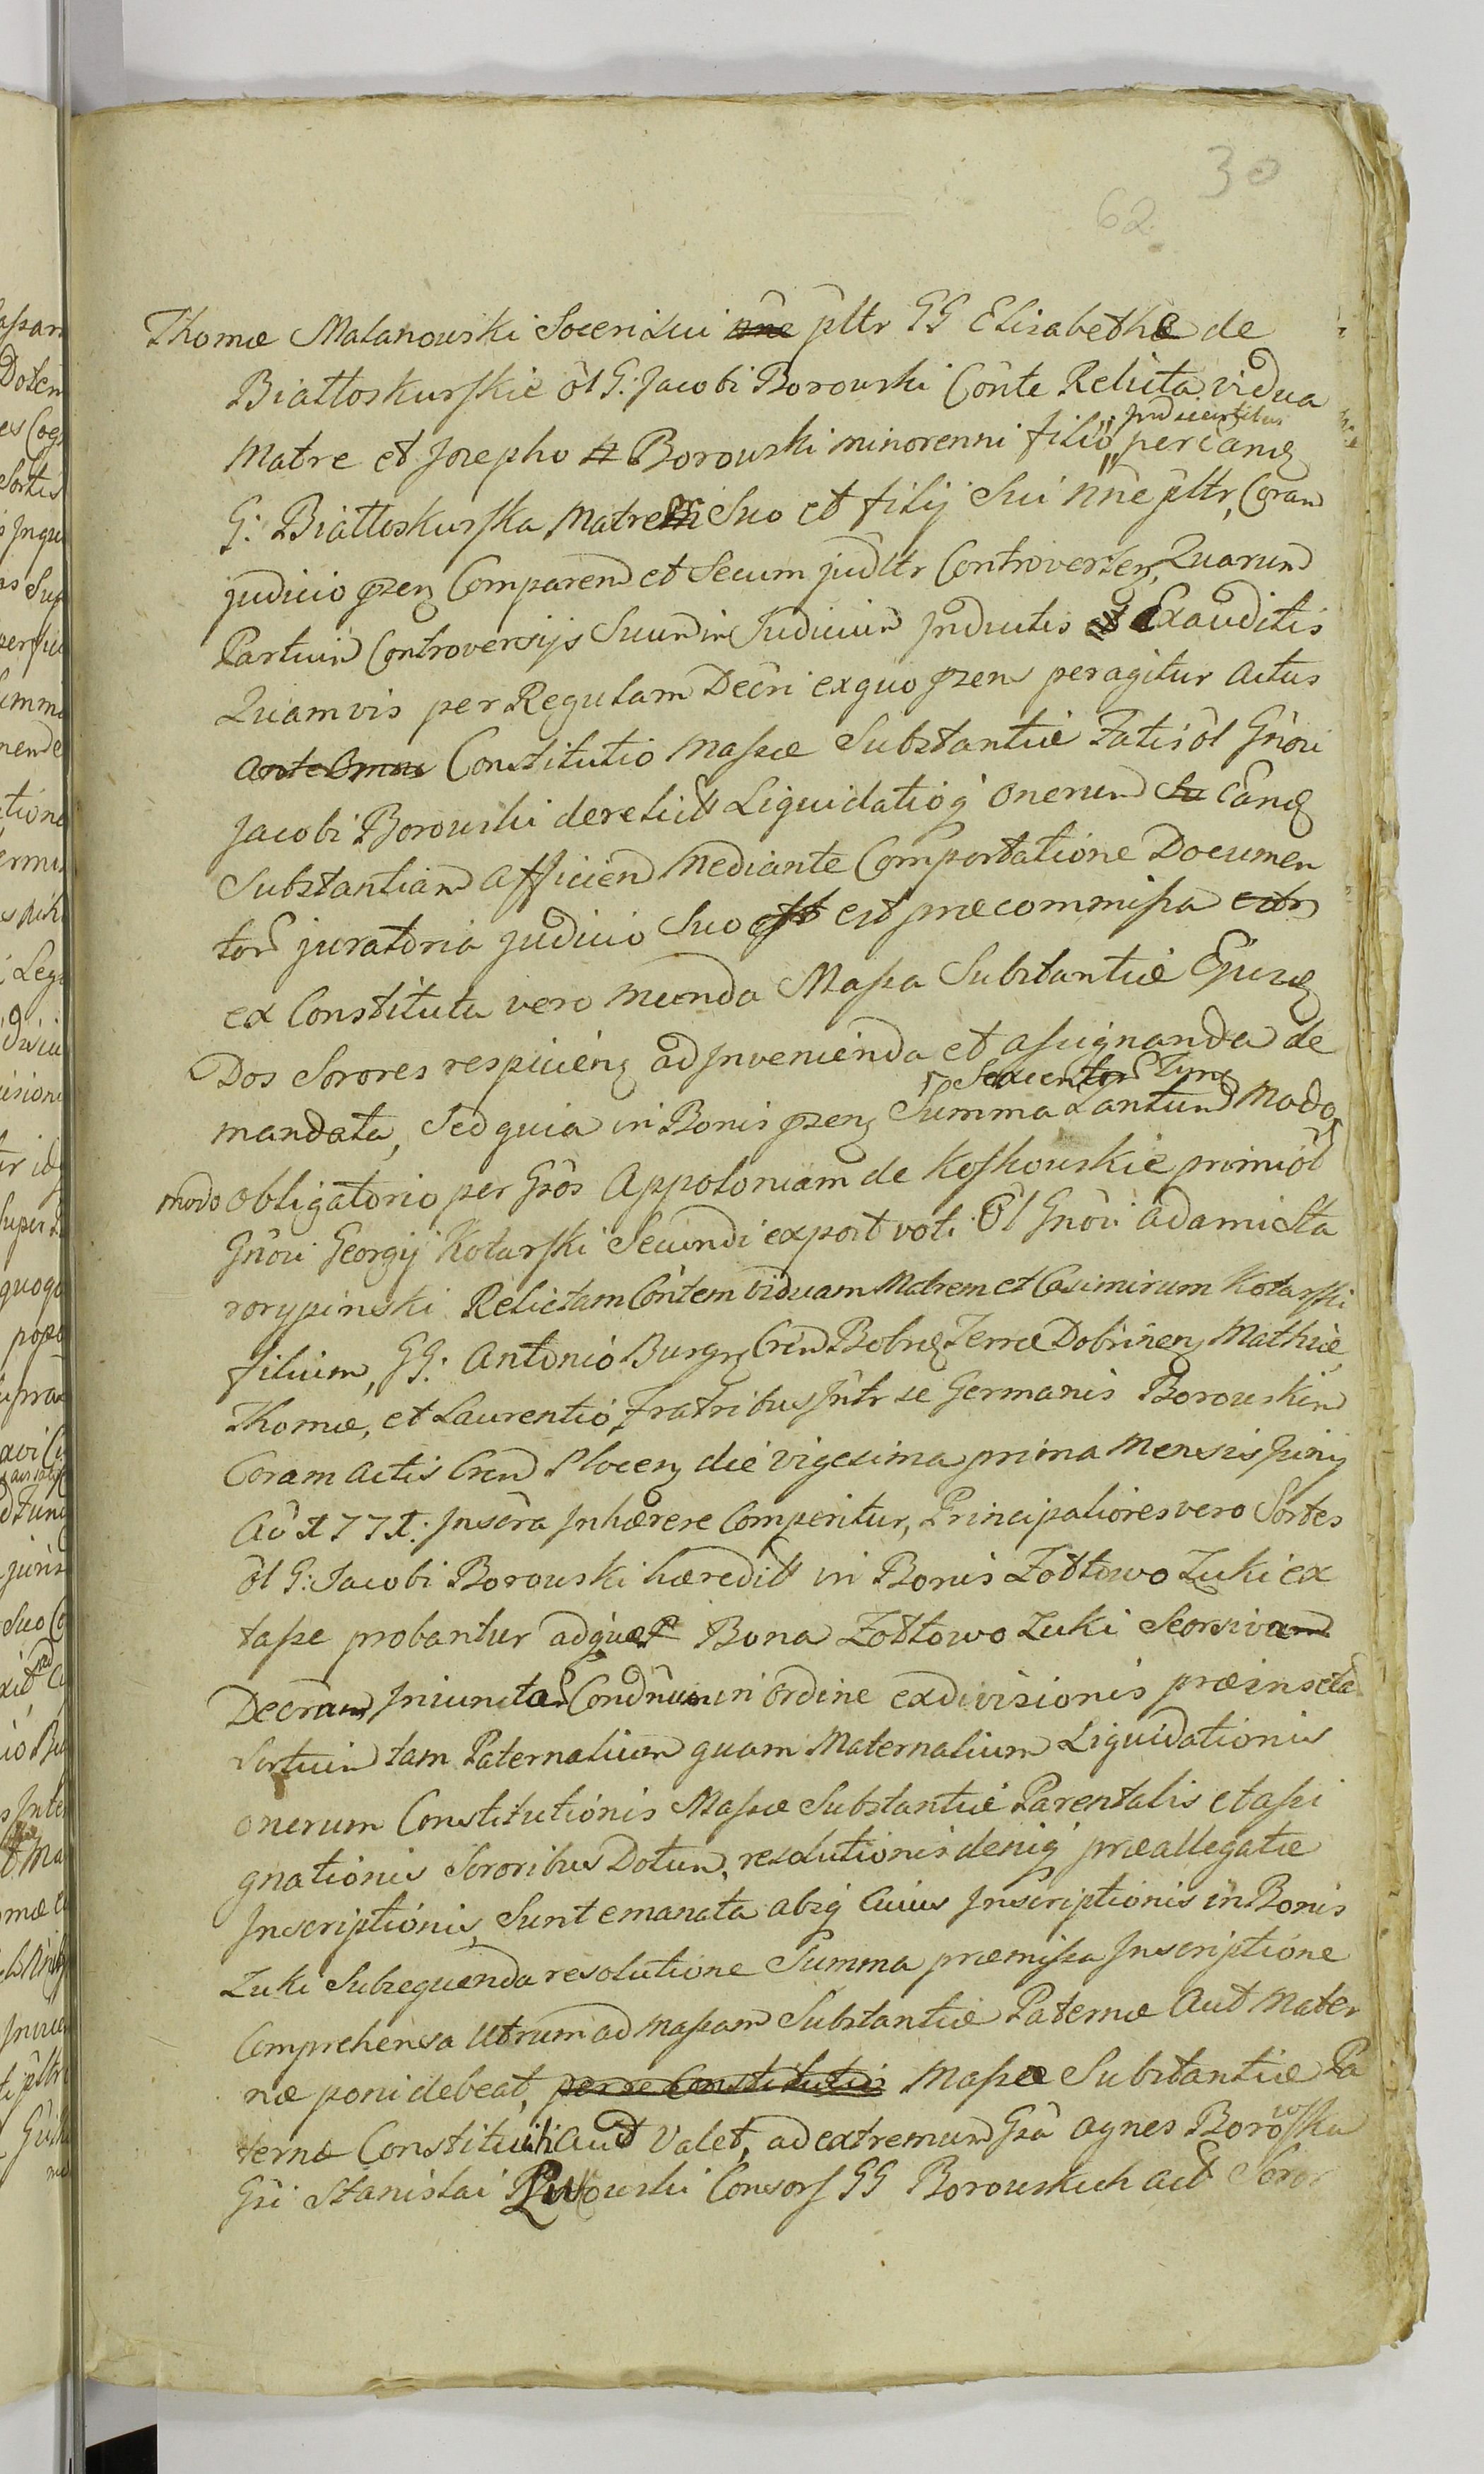 30
62
Thomæ Malanowski Soceri Sui nne pltr GG Elisabetha de
Białłoskurskie ol G: Jacobi Borowski Conte Relicta vidua
Matre et Josepho Borowski minorenni filio per eand
G: Białłoskurska Matrem Suo et filij Sui nne pltr, Coram
judicio pzen Comparen et Secum judltr Controverten, Quarum
Partium Controversijs Suum in Judicium Inductis et Exauditis
Quamvis per Regulam Decri exquo pzens peragitur Actus
ante omnia Constitutio Massæ Substantiæ Fatis ol Gnoi
Jacobi Borowski derelict Liquidatioq onerum eand
Substantiam afficien Mediante Comportatione Documen
tor juratoria judicio Suo est præcommissa
ex Constituta vero munda Massa Substantiæ Ejusd
Dos Sorores respiciens adInvenienda et assignanda de
mandata, Sed quia in Bonis pzen Summa tantum Modo
modo obligatorio per Gsos Appoloniam de Koskowskie primi ol
Gnoi Georgij Kotarski Secundi expost voti ol Gnoi Adami Sta
rorypinski Relictam Contem viduam Matrem et Casimirum Kotarski
filium, GG: Antonio Burgr Cren Bobr Terræ Dobrinen, Mathiæ,
Thomæ, et Laurentio, Fratribus Intr se Germanis Borowskim
Coram Actis Cren Plocen die vigesima prima Mensis Junij
Ao 1771: Inscra Inhærere Comperitur, Principaliores vero Sortes
ol G: Jacobi Borowski hæredit in Bonis Żółtowo Zuki ex
tasse probantur adque Bona Żółtowo Zuki Seorsiva
Decra Iniuncta Condnum in ordine exdivisionis præinscta
Sortium tam Paternalium quam Maternalium Liquidationis
onerum Constitutionis Massæ Substantiæ Parentalis et assi
gnationis Sororibus Dotum, resolutionis deniq præallegatæ
Inscriptionis, Sunt emanata absq Cuius Inscriptionis in Bonis
Zuki Subsequenda resolutione Summa præmissa Inscriptione
Comprehensa Utrum ad Massam Substantiæ Paternæ Aut Mater
næ poni debeat, per se Constitutio Massæ Substantiæ Pa
ternæ Constitui haud Valet, ad extremum Gsa Agnes Borowska
Gsi Stanislai Consors GG Borowskich act Soror